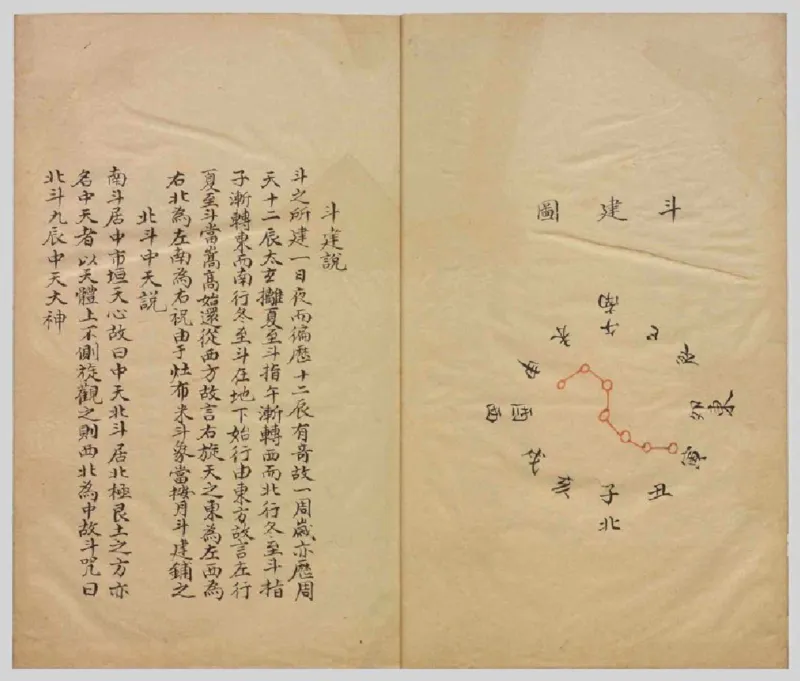 斗建圖
南
午
巳
辰
東
卯
寅
丑
子
北
亥
戌
西
酉
申
未
斗建說
斗之所建一日夜而徧歷十二辰有奇故一周歲亦歷周
天十二辰太玄攡夏至斗指午漸轉西而北行冬至斗指
子漸轉東而南行冬至斗在地下始行由東方故言左行
夏至斗當嵩高始還從西方故言右旋天之東為左西為
右北為左南為右祝由于灶布米斗象當按月斗建鋪之
北斗中天說
南斗居中市垣天心故曰中天北斗居北極艮土之方亦
名中天者以天體上不側旋觀之則西北為中故斗咒曰
北斗九辰中天大神